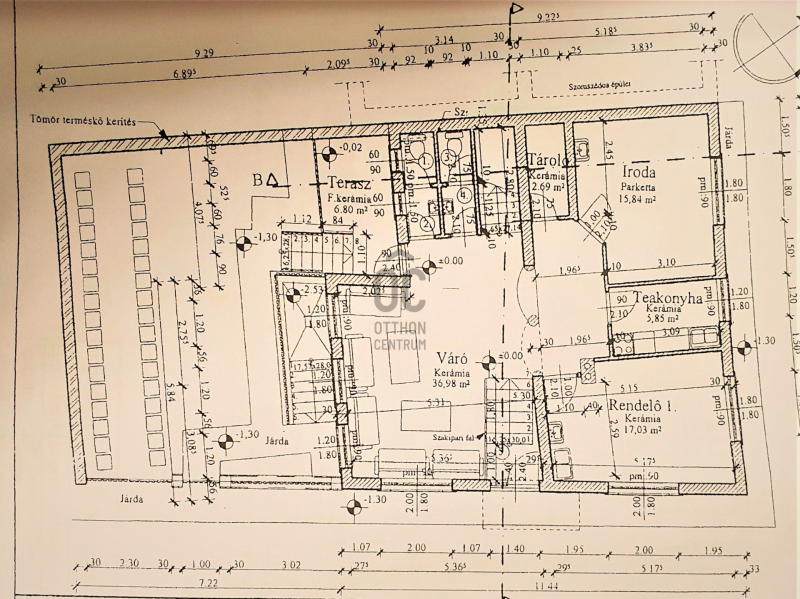 9.22⁵
9.29
30
3.14
30
5.18⁵
30
10
10
30
6.89⁵
2.09⁵
30
92
92
1.10
1.10
25
3.83⁵
30
Szomszédos épület
Tömör terméskő kerítés
Sz:
Járda
1,50⁵
B
-0,02
Terasz
F.kerámia
6.80 m²
60
90
60
90
1
2
3
4
Tároló
Kerámia
2.69 m²
Iroda
Parketta
15,84 m²
2.45
pm:90
1.80
1.80
4.07⁵
52⁵
60
60
76
90
-1,30
1.12
84
±0.00
90
2.40
2.00
2.10
1,96⁵
10
3.10
-2.53
2.02⁵
1.20
1.80
pm:90
OC
OTTHON
CENTRUM
Teakonyha
Kerámia
5,85 m²
90
2.10
3.09
pm:90
1.20
1.80
-1.30
2.75⁵
56
1.20
56
1.20
56
5.84
3.08³
Váró
Kerámia
36,98 m²
±0.00
30
1,96⁵
5.31
Szakipari fal
5.36⁵
5.15
30
1.10
40
2.59
Rendelő 1.
Kerámia
17,03 m²
pm:90
1.80
1.80
5.17⁵
pm:90
-1,30
Járda
1.20
1.80
Járda
-1.30
2.00
1.80
2.40
2.00
1.80
1.07
2.00
1.07
1.40
1.95
2.00
1.95
30
2.30
30
1.00
30
3.02
27⁵
5.36⁵
29⁵
5.17⁵
33
7.22
11.44